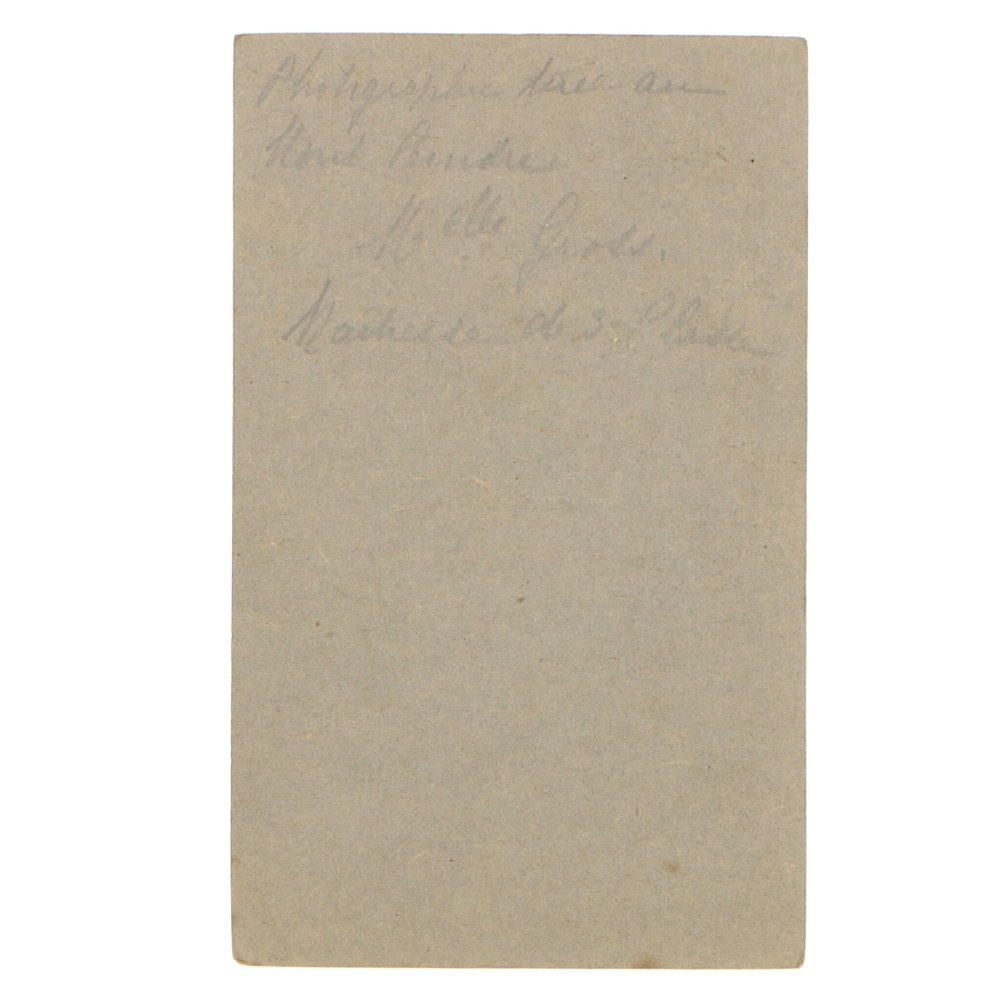 Photographie tirée au
Mont Tendre
Melle. Gross.
Maîtresse de 3e Classe